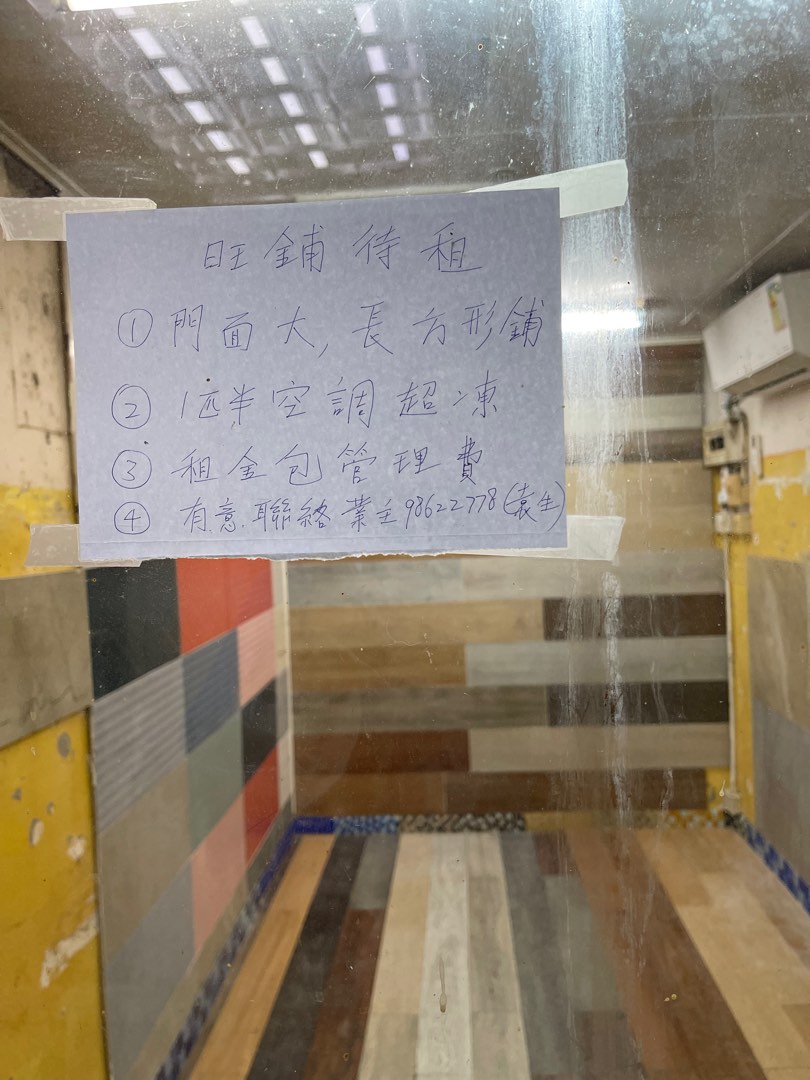 旺鋪待租
① 門面大, 長方形鋪
② 1匹半空調超凍
③ 租金包管理費
④ 有意聯絡業主98622778(袁生)